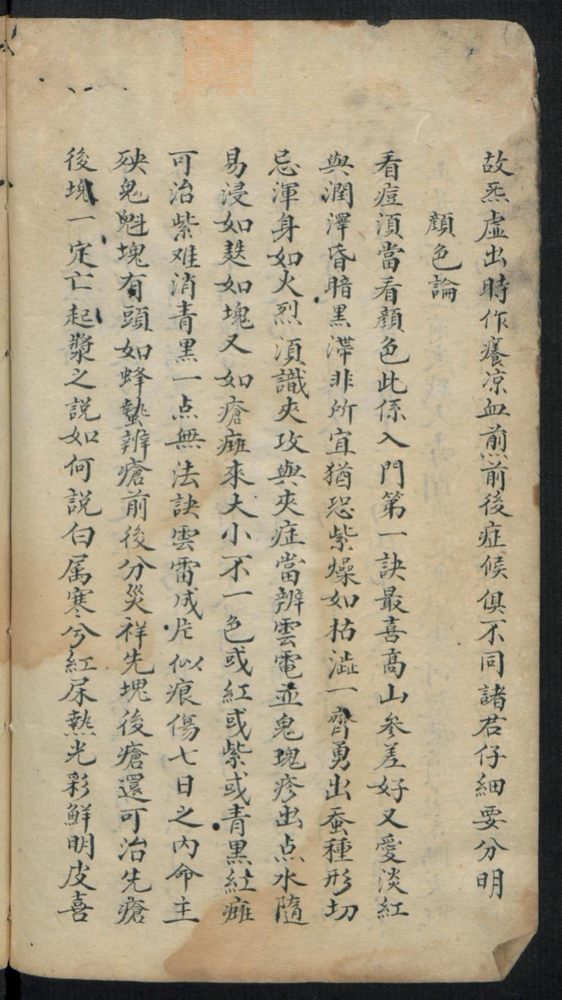 故炁虛出時作癢凉血煎前後症候俱不同諸君仔細要分明
顏色論
看痘須當看顏色此係入門第一訣最喜高山參差好又愛淡紅
與潤澤昏暗黑滯非所宜猶恐紫燥如枯澁一齊勇出蚕種形切
忌渾身如火烈須識夾攻與夾症當辨雲電並鬼瑰疹出点水隨
易浸如麩如塊又如瘡痲來大小不一色或紅或紫或青黑紅痲
可治紫难消青黑一点無法訣雲雷成片似痕傷七日之內命主
殃鬼魁塊有頭如蜂蟄辨瘡前後分災祥先塊後瘡還可治先瘡
後塊一定亡起漿之説如何説白属寒兮紅尿熱光彩鮮明皮喜